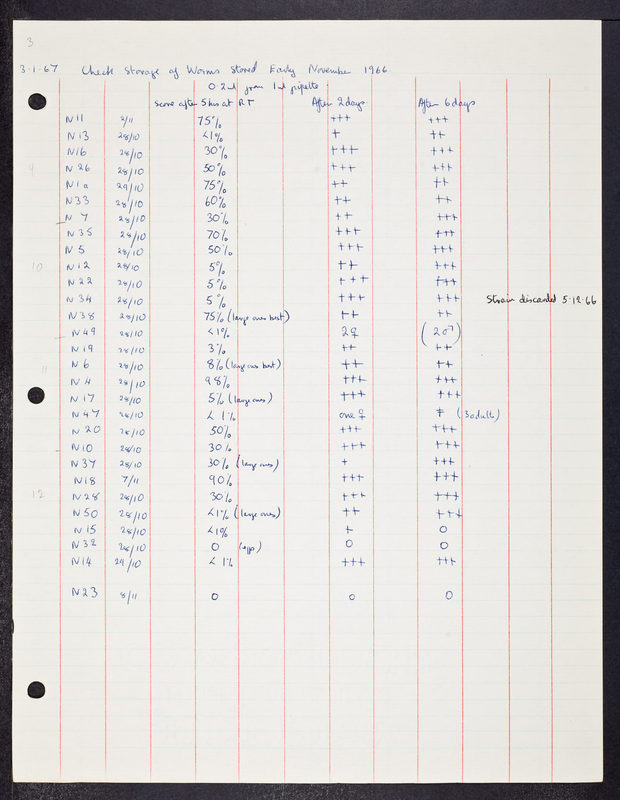 3
3-1-67 Check Storage of Worms Stored Early November 1966
0.2ml from 1ml pipette.
Score after 5hrs at RT After 2 days After 6 days
N11 2/11 75% +++ +++
N13 28/10 <1% + ++
N16 28/10 30% +++ +++
N26 28/10 50% +++ +++
N1a 29/10 75% ++ ++
N33 28/10 60% ++ ++
N7 28/10 30% ++ +++
N35 28/10 70% +++ +++
N5 28/10 50% +++ +++
N12 28/10 5% ++ +++
N22 28/10 5% +++ +++
N34 28/10 5% +++ +++ Strain discarded 5-12-66
N38 28/10 75% (large ones best) ++ ++
N49 28/10 <1% 2♀ (2♂)
N19 28/10 3% ++ ++
N6 28/10 8% (large ones best) ++ ++
N4 28/10 98% +++ +++
N17 28/10 5% (large ones) +++ +++
N47 28/10 <1% one ♀ + (3 adults)
N20 28/10 50% +++ +++
N10 28/10 30% +++ +++
N37 28/10 30% (large ones) + +++
N18 7/11 90% +++ +++
N28 28/10 30% +++ +++
N50 28/10 <1% (large ones) ++ +++
N15 28/10 <1% + 0
N32 28/10 0 (eggs) 0 0
N14 29/10 <1% +++ +++
N23 8/11 0 0 0